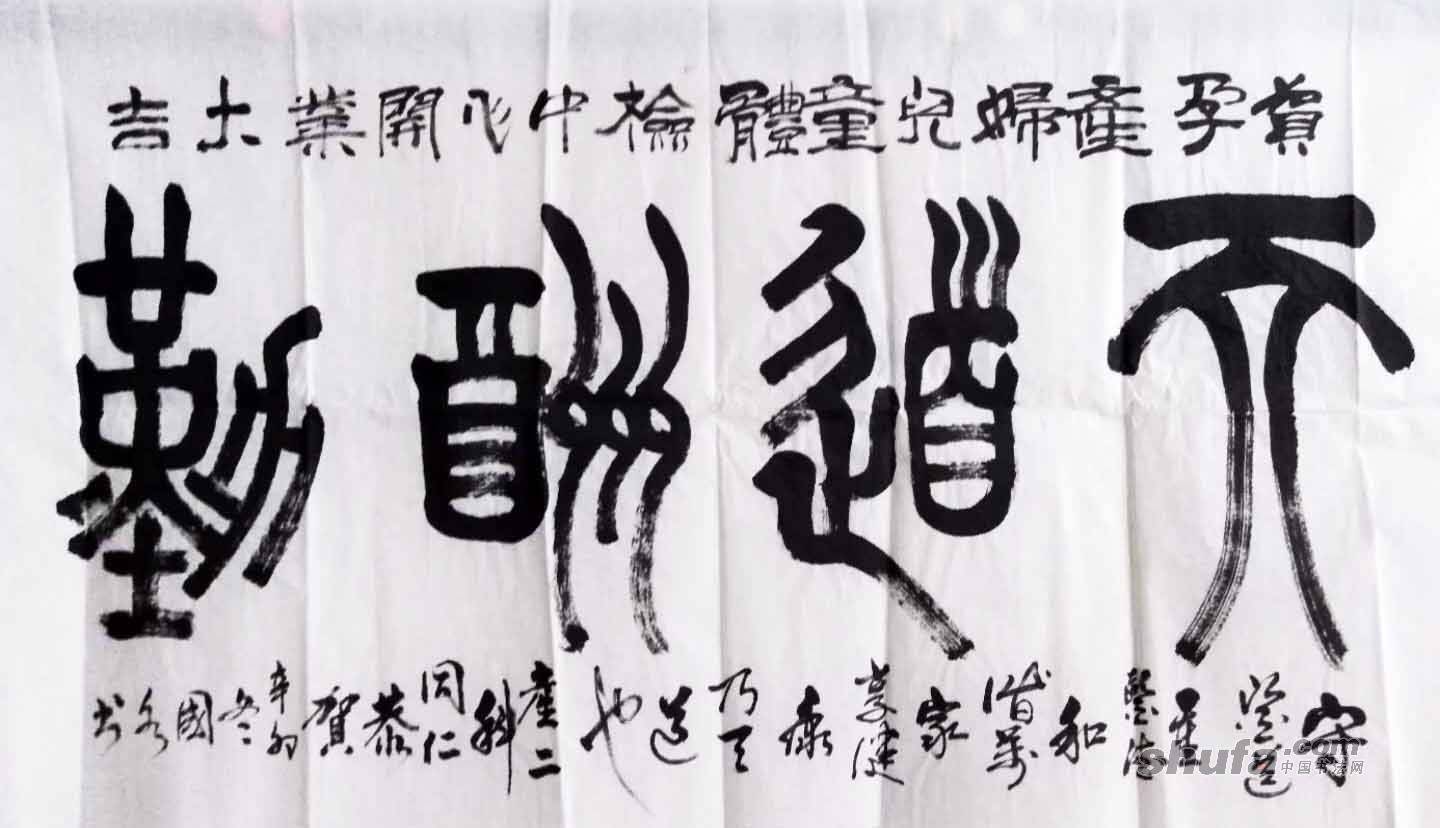 賀孕產婦兒童體檢中心開業大吉
天道酬勤
守道醫德和諧萬家健康乃天道也產二科同仁恭賀辛卯冬國书
shufa.com
中国书法网